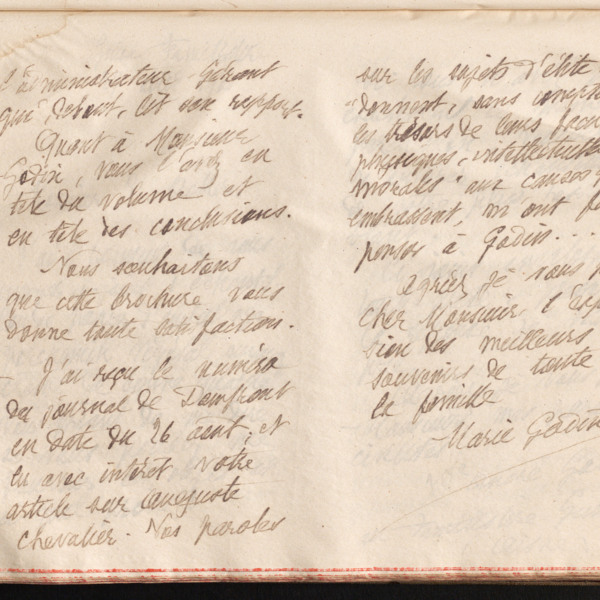 l'administrateur-Gérant
qui debout, lit son rapport.
Quant à Monsieur
Godin, vous l'avez en
tête du volume et
en tête des conclusions.
Nous souhaitons
que cette brochure vous
donne toute satisfaction.
- J'ai reçu le numéro
du journal de Domfront
en date du 26 août, et
lu avec intérêt votre
article sur Auguste
Chevalier. Vos paroles
sur les sujets d'élite
"donnant, sans
les trésors de leurs
physiques, intellectuelles
morales" aux causes
embrassent, m'ont
penser à Godin...
Agréez je vous
cher Monsieur l'
sion des meilleurs
souvenirs de toute
la famille
Marie Godin